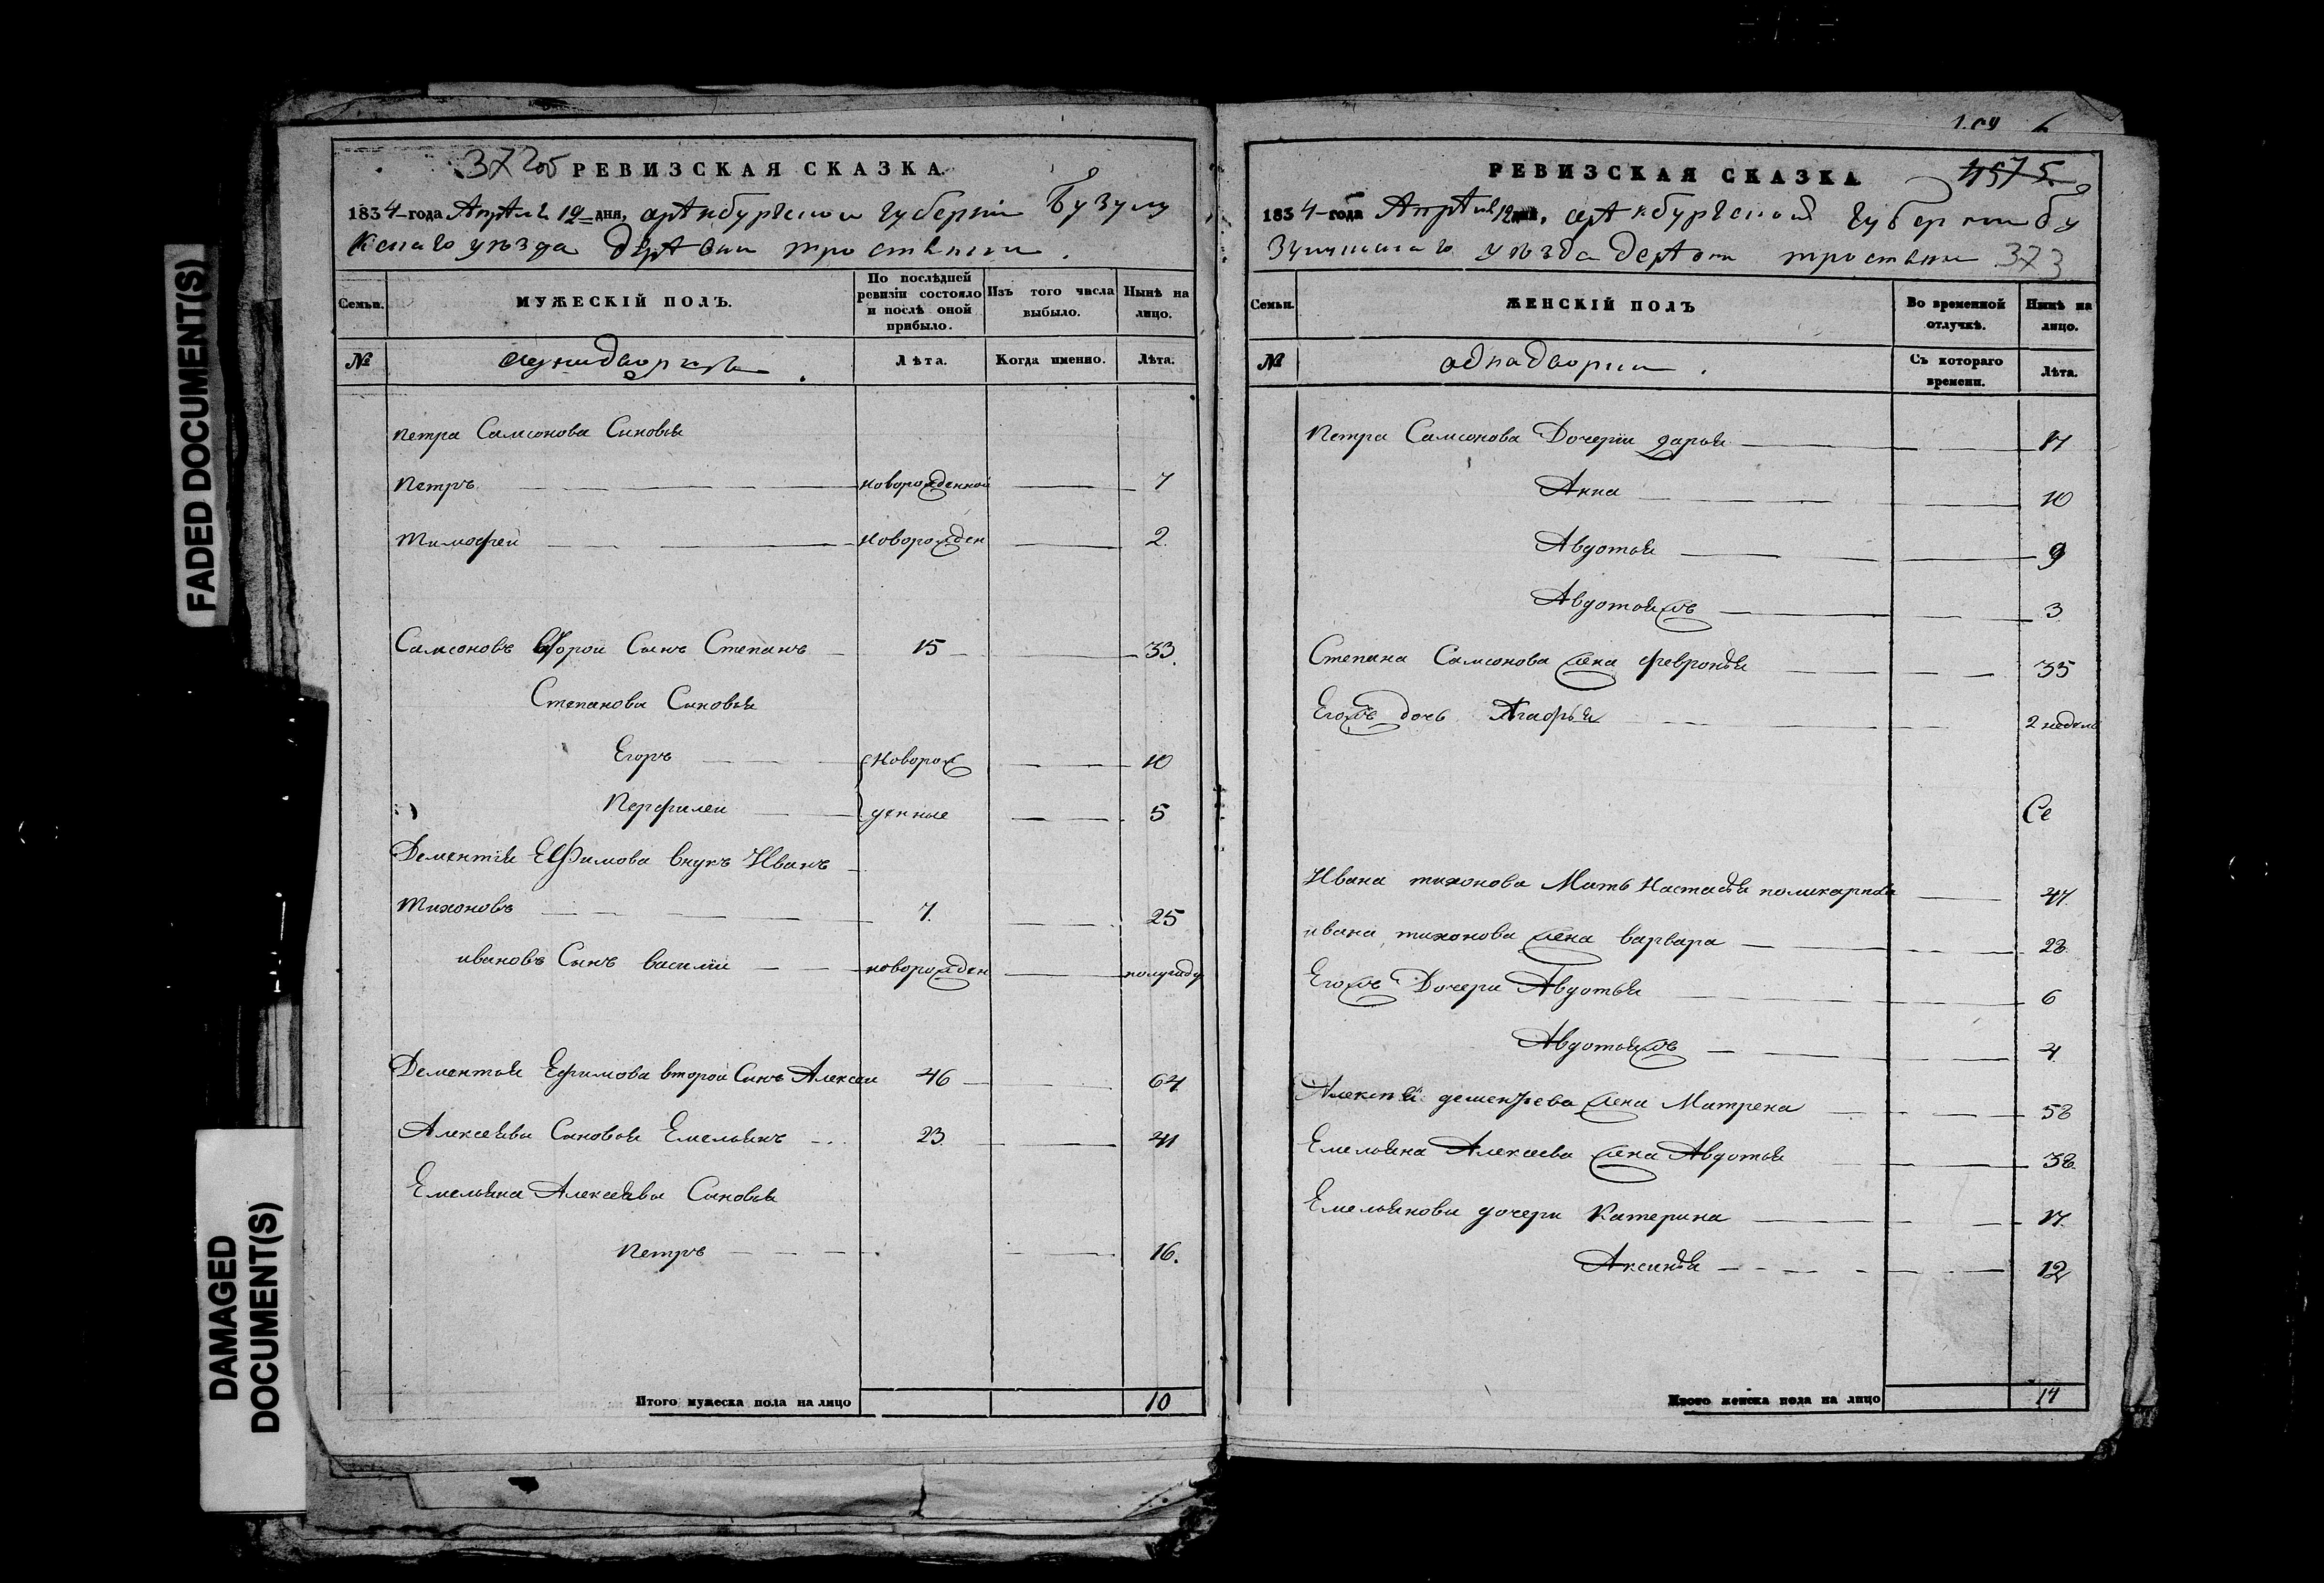 FADED DOCUMENT(S)
DAMAGED
DOCUMENT(S)
РЕВИЗСКАЯ СКАЗКА
1834 года Апреля 12 дня, аренбургской губернии Бузулу
кскаго уезда деревни тростянки
Семьи. МУЖЕСКІЙ ПОЛЪ. По послѣдней ревизіи состояло и послѣ оной прибыло. Изъ того числа выбыло. Нынѣ на лицо.
№ Лѣта. Когда именно. Лѣта.
петра Самсонова Сыновья
петръ новорожденной 7
тимофеи новорожден 2
Самсоновъ второй Сынъ Степанъ 15 33
Степановы Сыновья
Егоръ новорож 10
перфилеи денные 5
Дементія Ефимова внукъ Иванъ
тихоновъ 7 25
ивановъ Сынъ василіи новорожден полугоду
Дементья Ефимова второй Сынъ Алексеи 46 64
Алексеява Сыновья Емельянъ 23 41
Емельяна Алексеява Сыновья
петръ 16.
Итого мужеска пола на лицо 10
РЕВИЗСКАЯ СКАЗКА 4575
1834 года Апреля 12 дня, аренбургской губернии бу
зулукскаго уезда деревни тростянки 373
Семьи. ЖЕНСКІЙ ПОЛЪ Во временной отлучкѣ. Нынѣ на лицо.
№ аднадворки Съ котораго времени. Лѣта.
петра Самсонова Дочерiи дарья 17
Анна 10
Авдотья 9
Авдотьяжъ 3
Степана Самсонова жена февронья 35
Егожъ дочь Агафья 2 недели
Се
Ивана тихонова Мать Настасья 47
ивана тихонова жена варвара 28
Егожъ Дочери Авдотья 6
Авдотьяжъ 4
Алексея дементьева жена Матрена 58
Емельяна Алексеева жена Авдотья 38
Емельяновы дочери Катерина 17
Аксинья 12
Итого женска пола на лицо 14